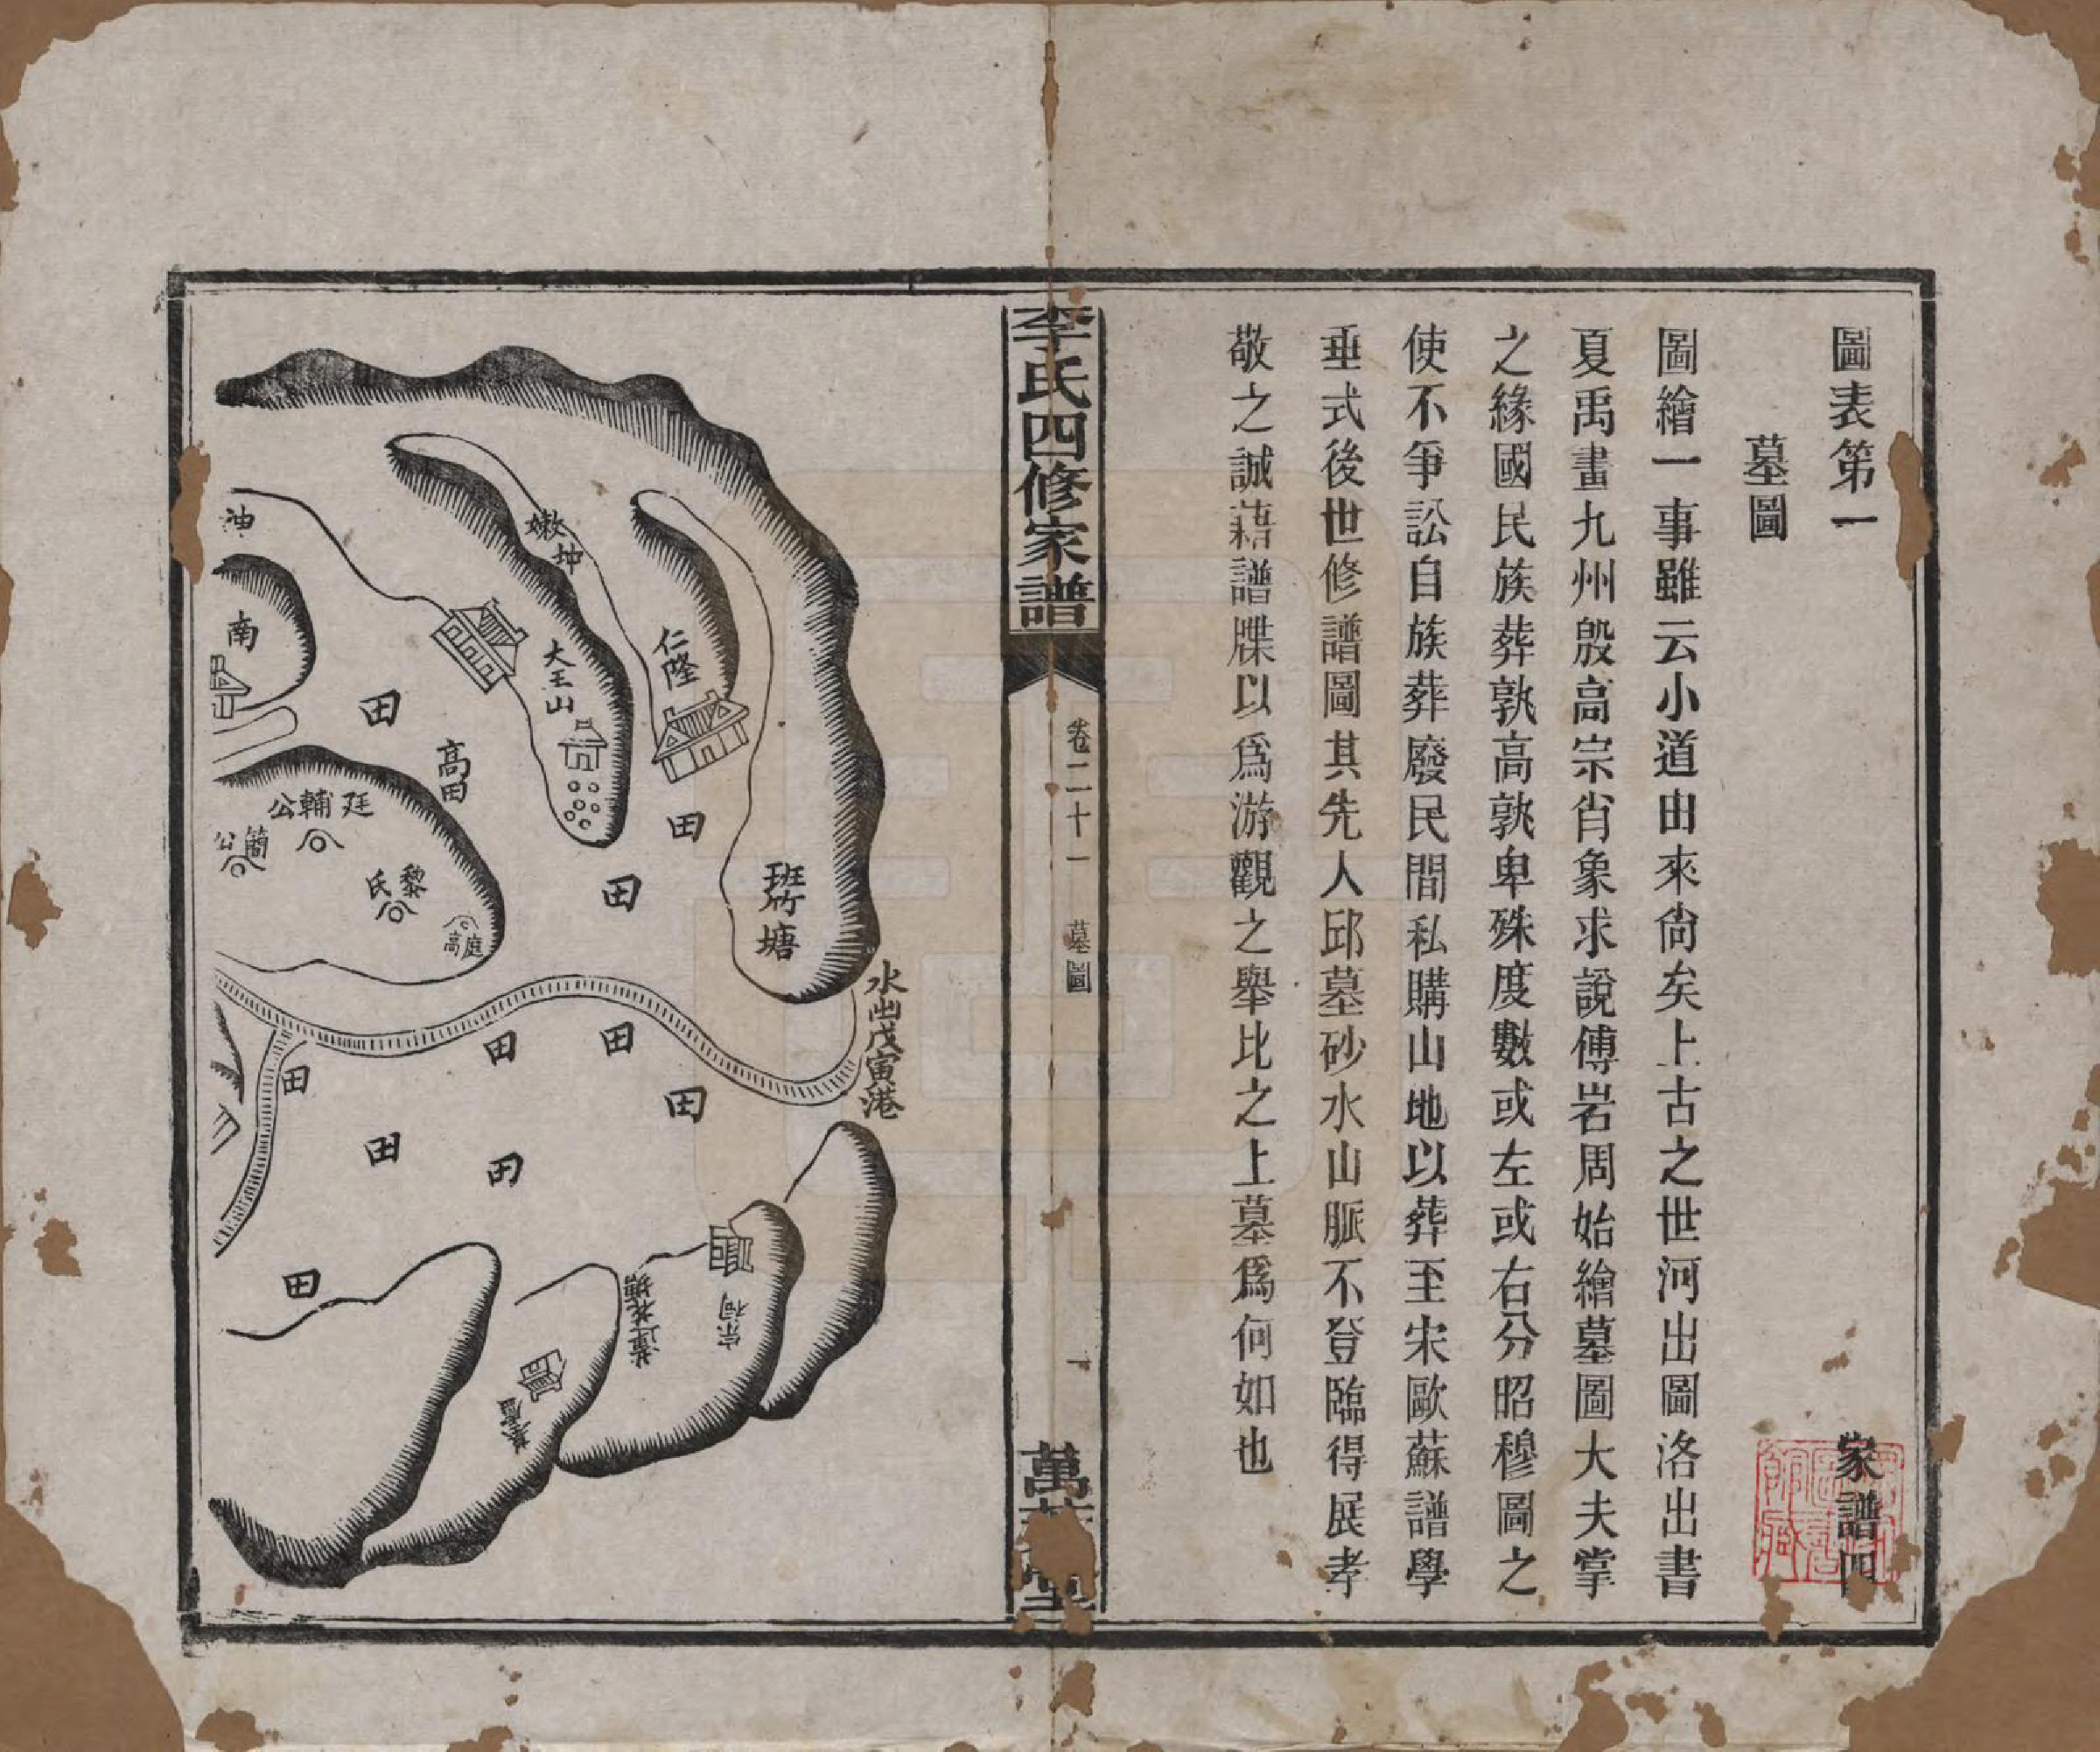 圖表第一
家譜四
墓圖
圖繪一事雖云小道由來尙矣上古之世河出圖洛出書
夏禹畫九州殷高宗肖象求說傅岩周始繪墓圖大夫掌
之緣國民族葬孰高孰卑殊度數或左或右分昭穆圖之
使不爭訟自族葬廢民間私購山地以葬至宋歐蘇譜學
垂式後世修譜圖其先人邱墓砂水山脈不登臨得展孝
敬之誠藉譜牒以爲游觀之舉比之上墓爲何如也
李氏四修家譜
卷二十一
墓圖
一
萬
堂
水出戊寅港
塘
仁隆
嫩坤
大王山
高田
油
南
廷輔公
簡公
黎氏
庭高
田
田
田
田
田
田
田
田
田
田
宗祠
蓮花塘
墓廬